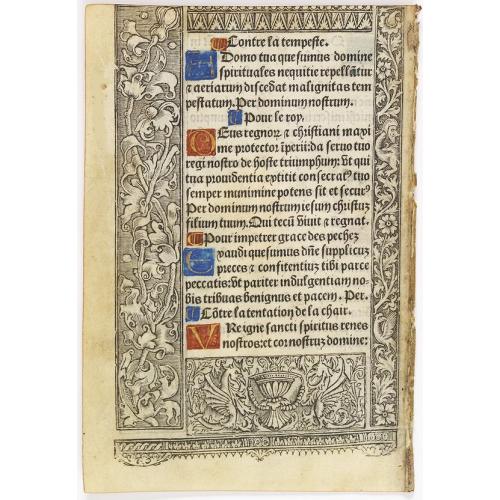 Contre la tempeste.
A Domo tua quesumus domine
spirituales nequitie repellãtur
⁊ aeriarum discedat malignitas tem
pestatum. Per dominum nostrum.
Pour le roy.
Deus regnorꝝ ⁊ christiani maxi
me protector ĩperii: da seruo tuo
regi nostro de hoste triumphum: vt qui
tua prouidentia extitit consecratꝰ tuo
semper munimine potens sit et securꝰ
Per dominum nostrum iesum christuʒ
filium tuum. Qui tecũ viuit ⁊ regnat.
Pour impetrer grace des pecheʒ
Exaudi quesumus dñe supplicuʒ
preces ⁊ confitentiuʒ tibi parce
peccatis: vt pariter indulgentiam no
bis tribuas benignus et pacem. Per.
Cõtre la tentation de la chair.
VRe igne sancti spiritus renes
nostros: et cor nostruʒ domine: